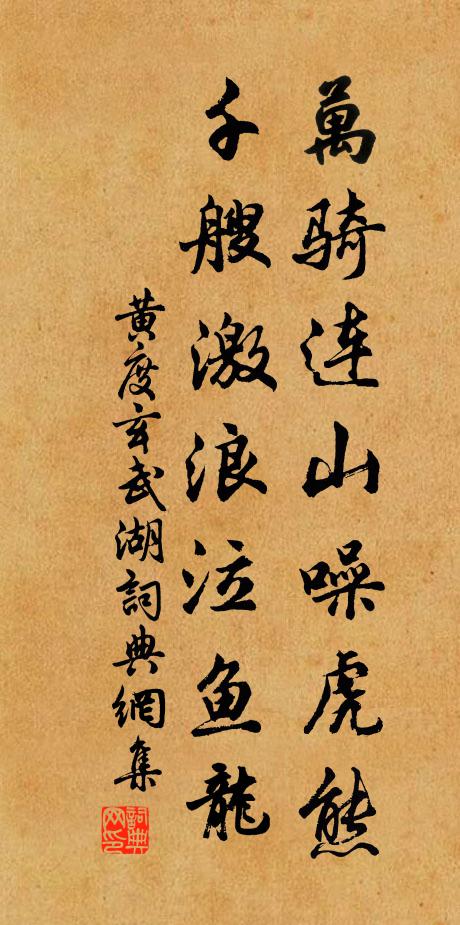 萬骑连山噪虎熊
千艘激浪泣鱼龍
黄度玄武湖詞典網集
詞典网印